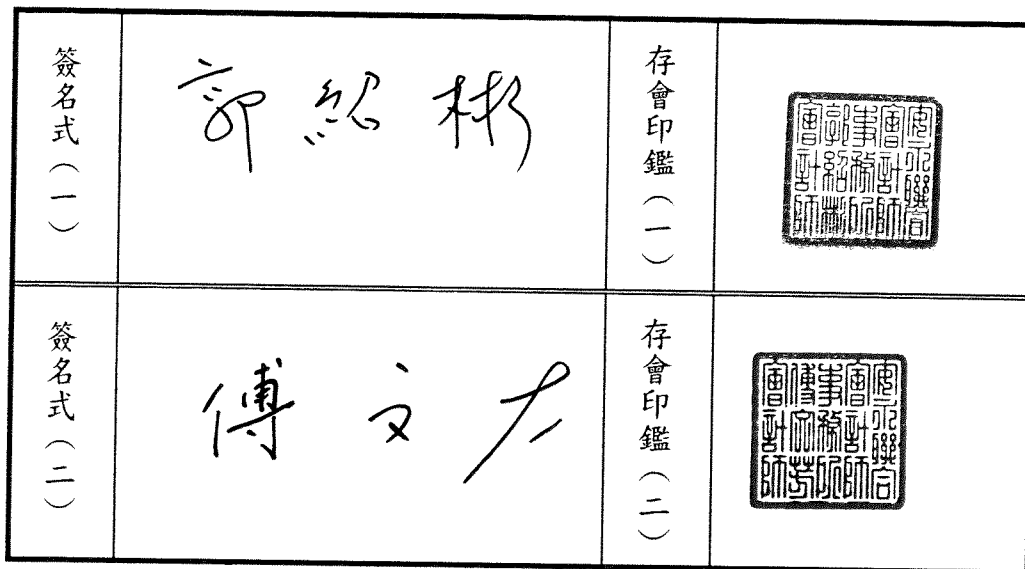 簽名式（一）
郭紹彬
存會印鑑（一）
安永聯合
會計師
事務所
郭紹彬
會計師
簽名式（二）
傅文芳
存會印鑑（二）
安永聯合
會計師
事務所
傅文芳
會計師